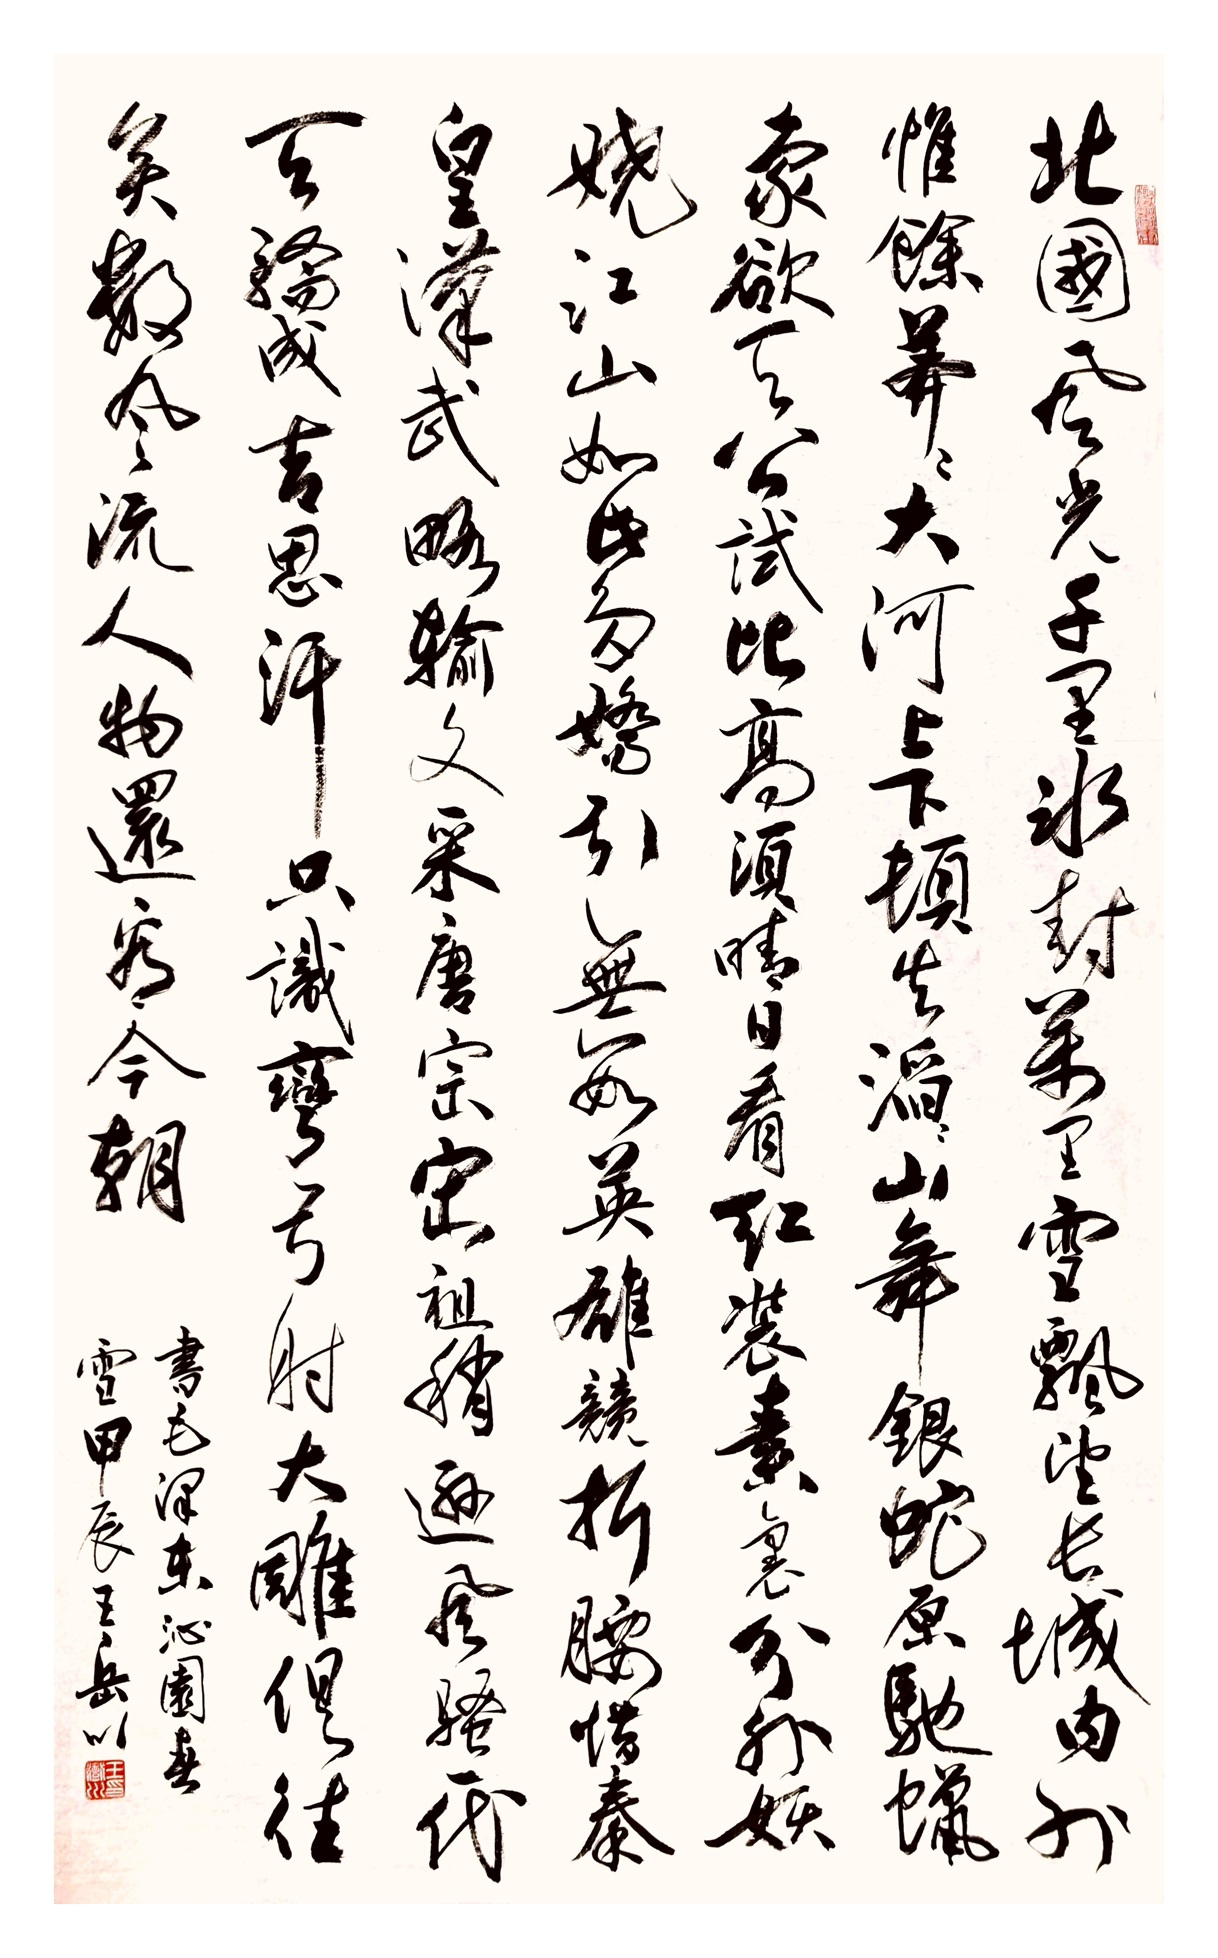 北國風光千里冰封萬里雪飄望長城內外
惟餘莽〻大河上下頓失滔〻山舞銀蛇原馳蠟
象欲天公試比高須晴日看紅裝素裹分外妖
嬈江山如此多嬌引無數英雄競折腰惜秦
皇漢武略輸文采唐宗宋祖稍遜風騷一代
天驕成吉思汗只識彎弓射大雕俱往
矣數風流人物還看今朝
書毛澤東沁園春
雪甲辰王岳川